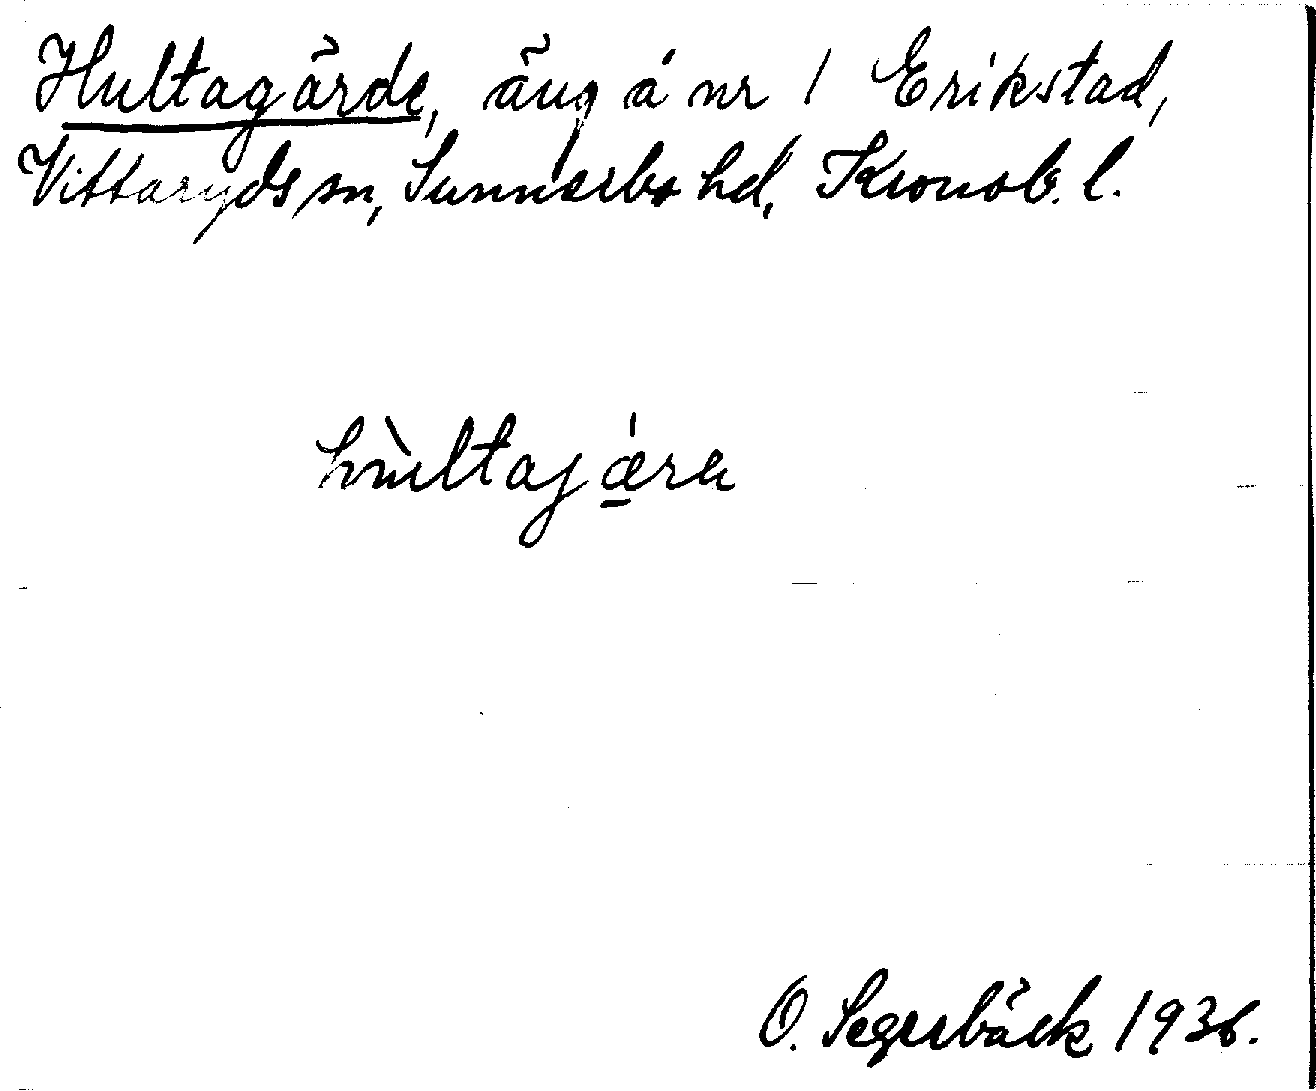 Hultagärde, äng å nr 1 Erikstad,
Vittaryds sn, Sunnerbo hd, Kronob. l.
hùltajǽ̠ra
O. Segerbäck 1936.